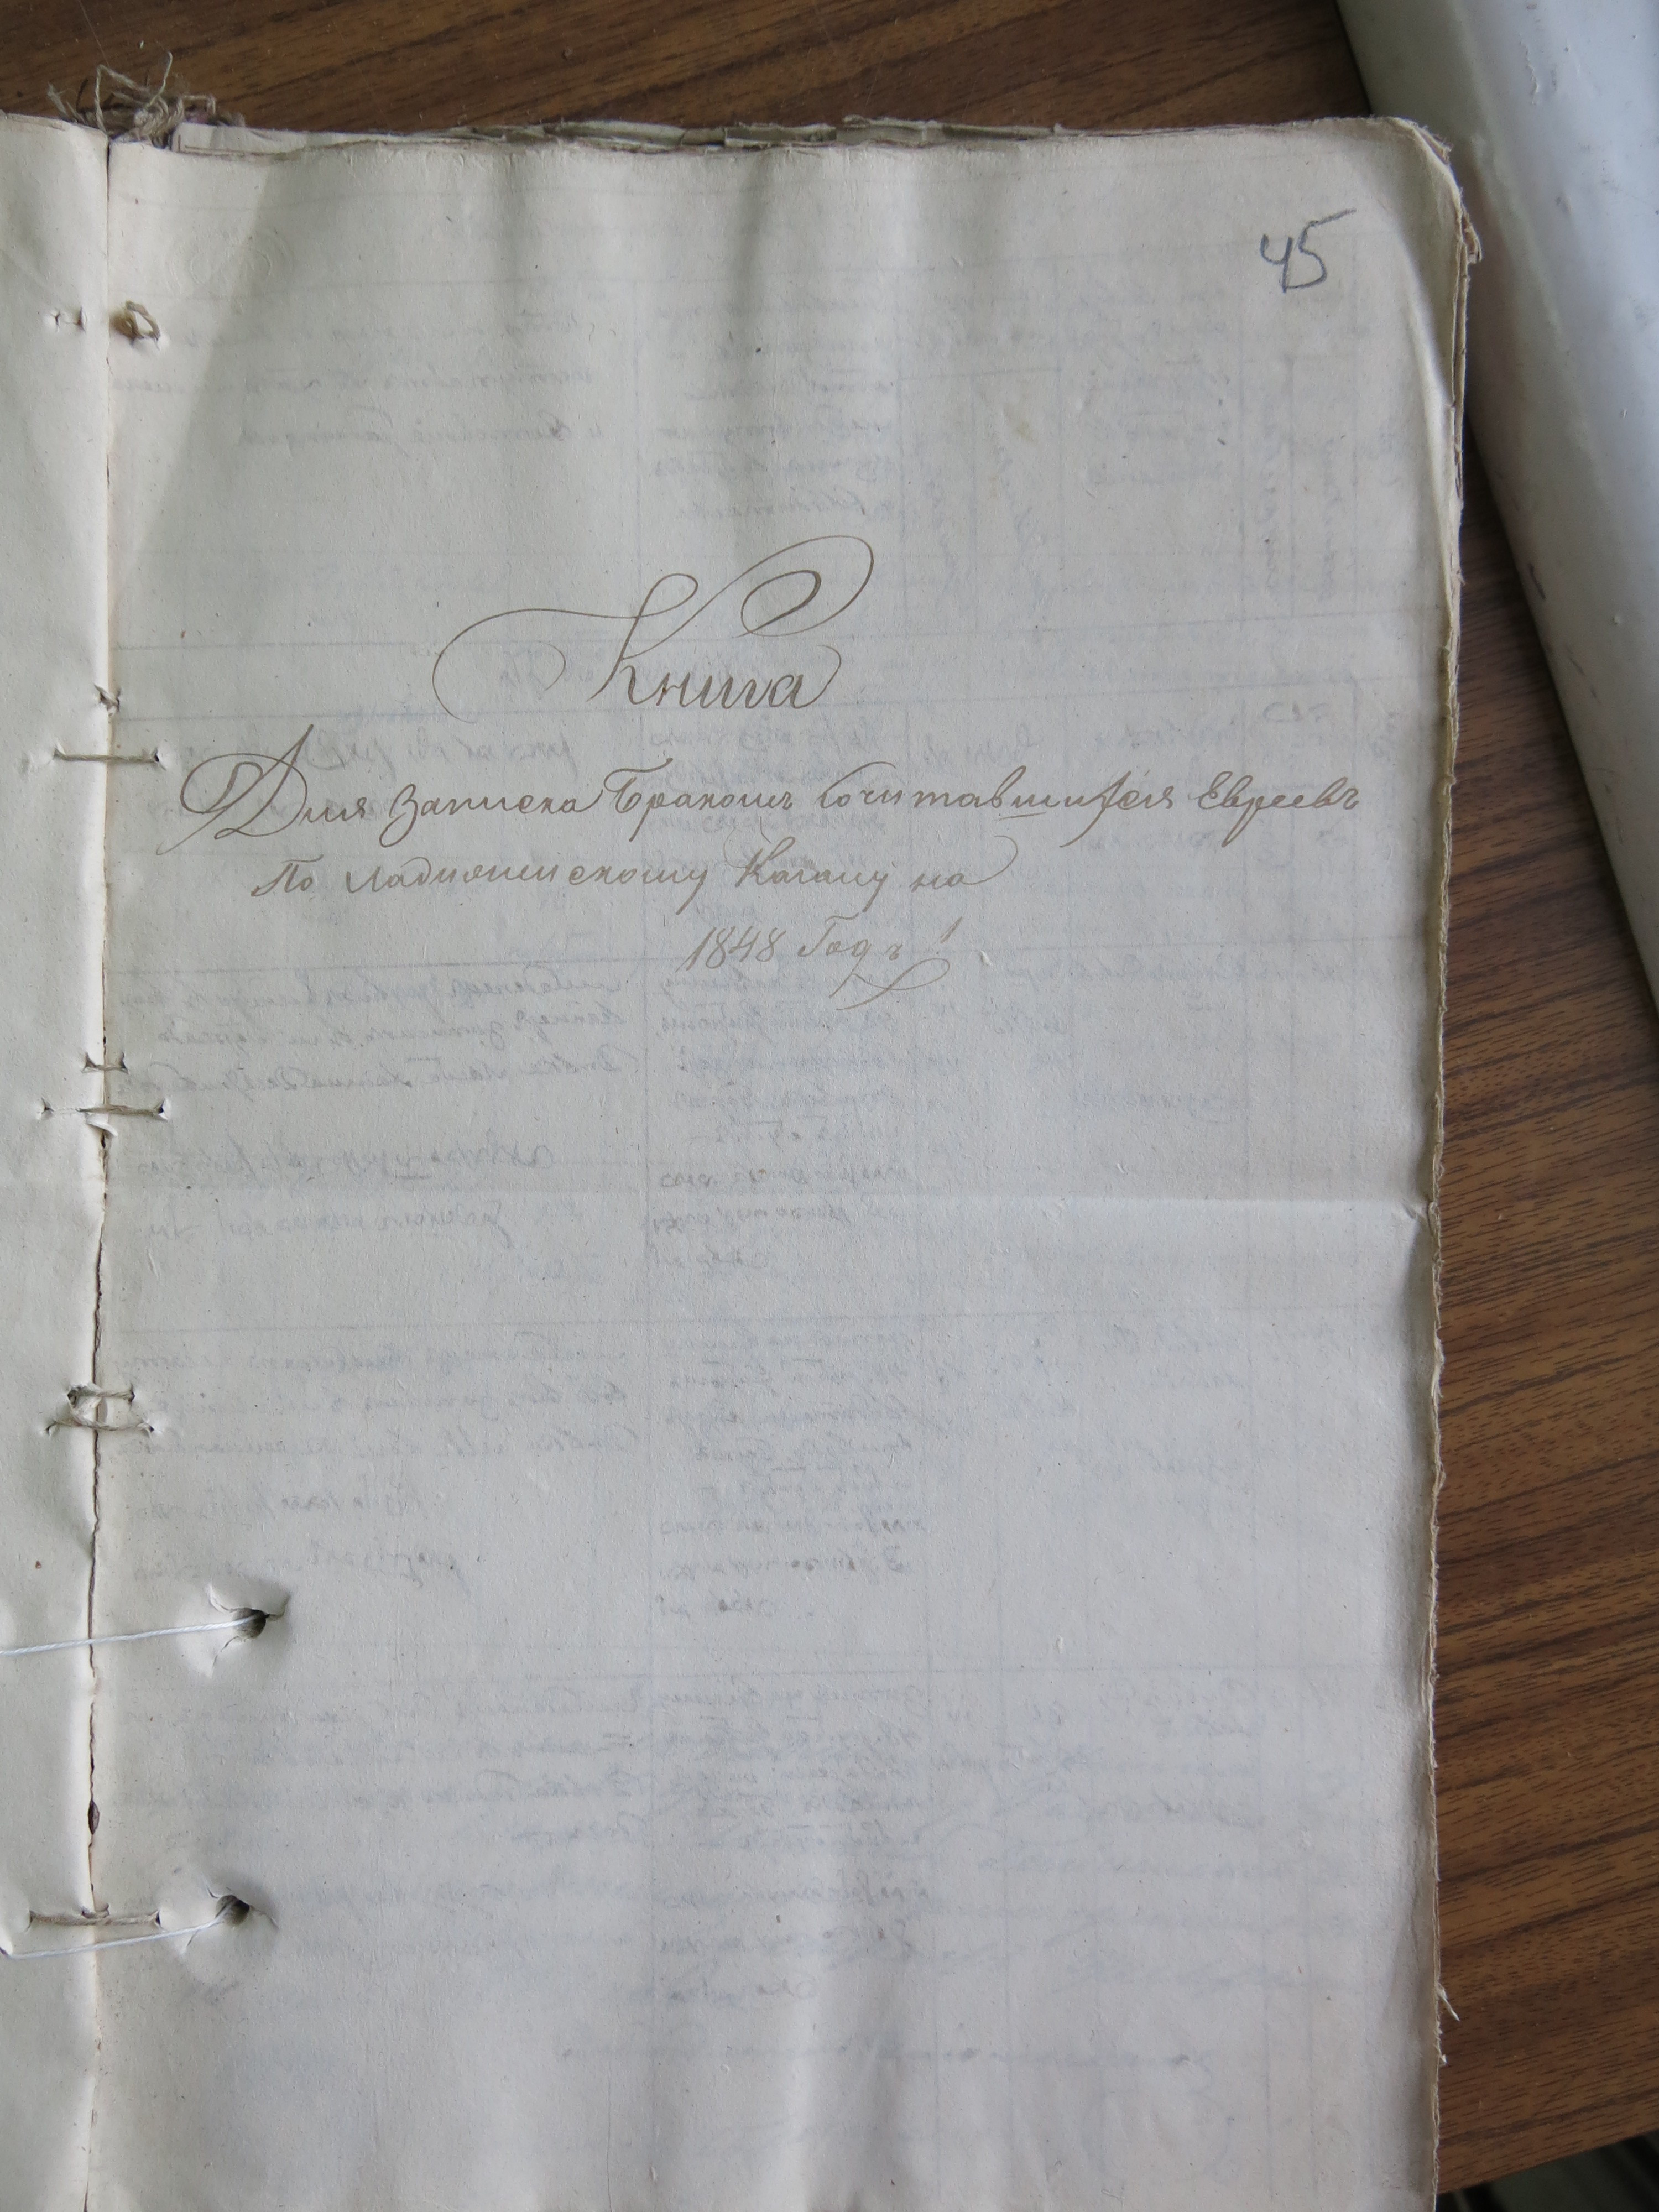 45
Книга
Для записка Бракомъ Сочитавшихся Евреевъ
По Ладыжинскому Кагалу на
1848 Годъ!